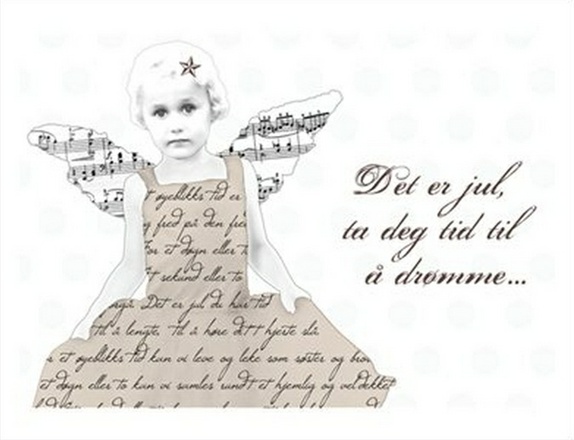 Det er jul,
ta deg tid til
å drømme...
et øyeblikks tid er
fred på den
For et døgn eller
sekund eller to
Det er jul du har tid
til å lengte, til å høre ditt hjerte slå
et øyeblikks tid kun vi leve og leke som søster og
et døgn eller to kun vi samles rundt et hjemlig og vel dekket